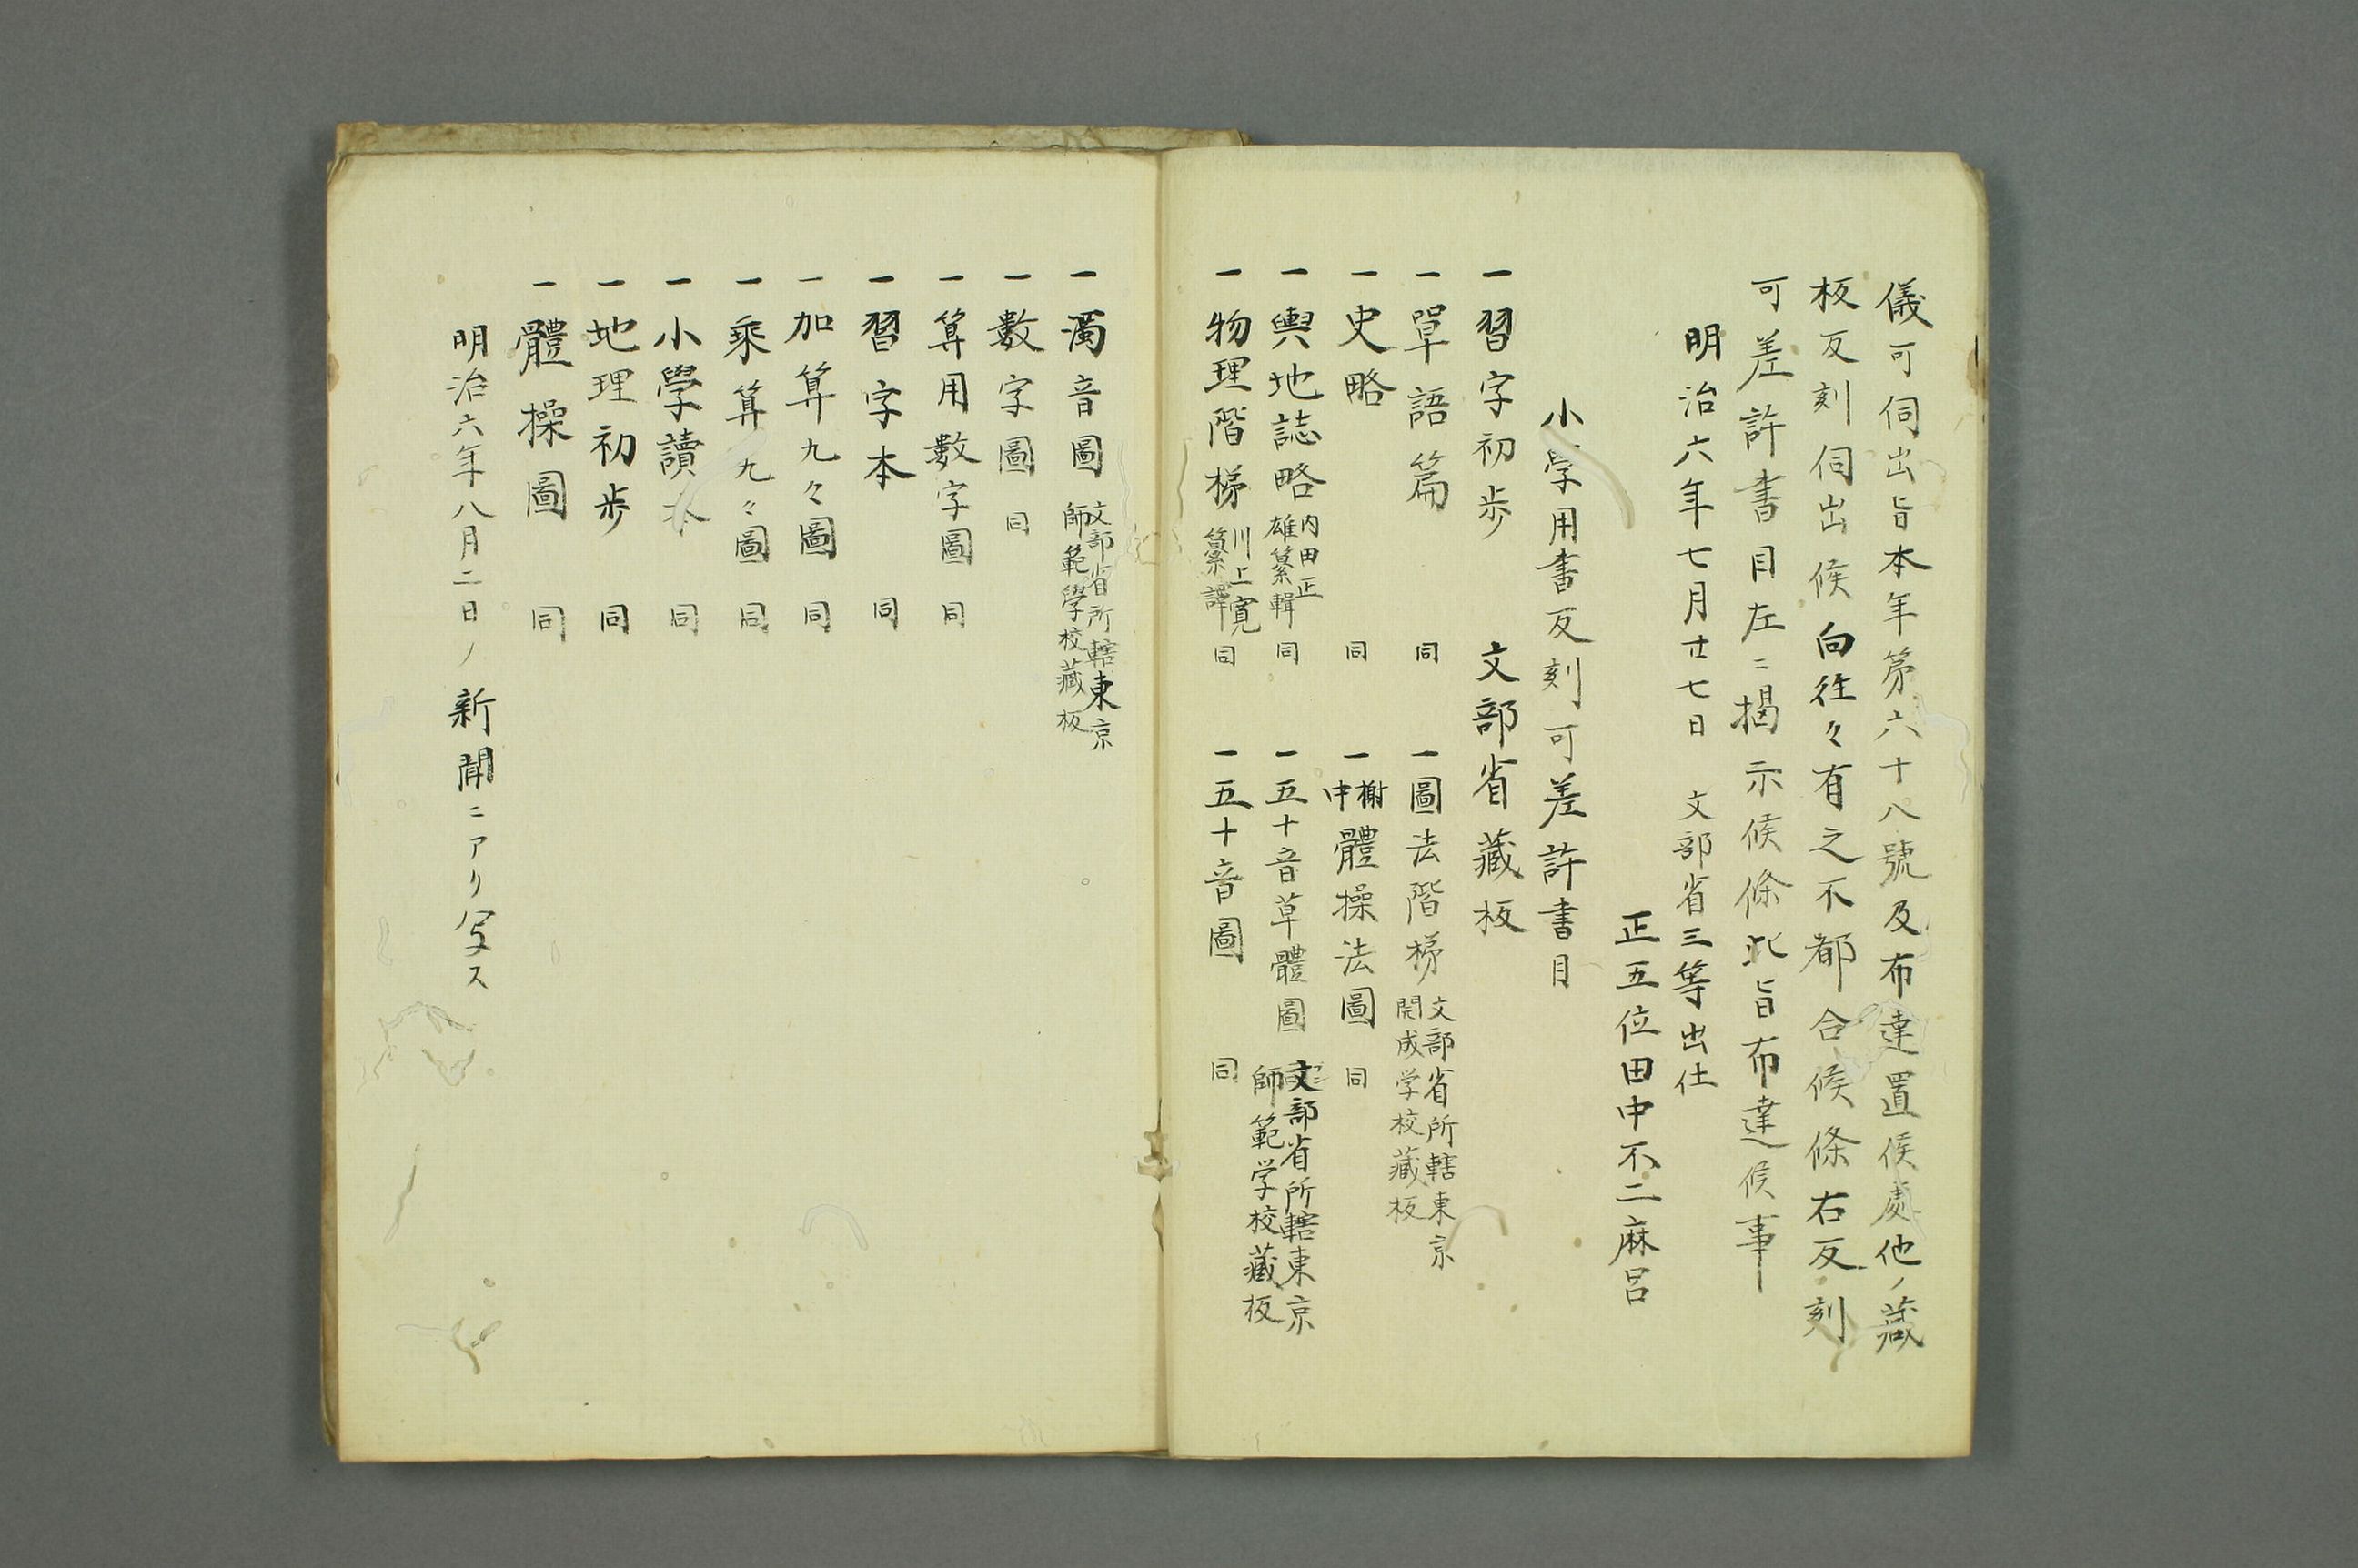 儀可伺出旨本年第六十八號及布達置候處他ノ藏
板反刻伺出候向往々有之不都合候條右反刻
可差許書目左ニ揭示候條此旨布達候事
明治六年七月廿七日 文部省三等出仕
正五位田中不二麻呂
小学用書反刻可差許書目
一習字初歩 文部省藏板
一單語篇 同
一圖法階梯 文部省所轄東京
開成学校藏板
一史略 同
一榭中體操法圖 同
一輿地誌略 内田正
雄纂輯 同
一五十音草體圖 文部省所轄東京
師範学校藏板
一物理階梯 川上寛
纂譯 同
一五十音圖 同
一濁音圖 文部省所轄東京
師範學校藏板
一數字圖 同
一算用數字圖 同
一習字本 同
一加算九々圖 同
一乘算九々圖 同
一小學讀本 同
一地理初歩 同
一體操圖 同
明治六年八月二日ノ新聞ニアリ写ス